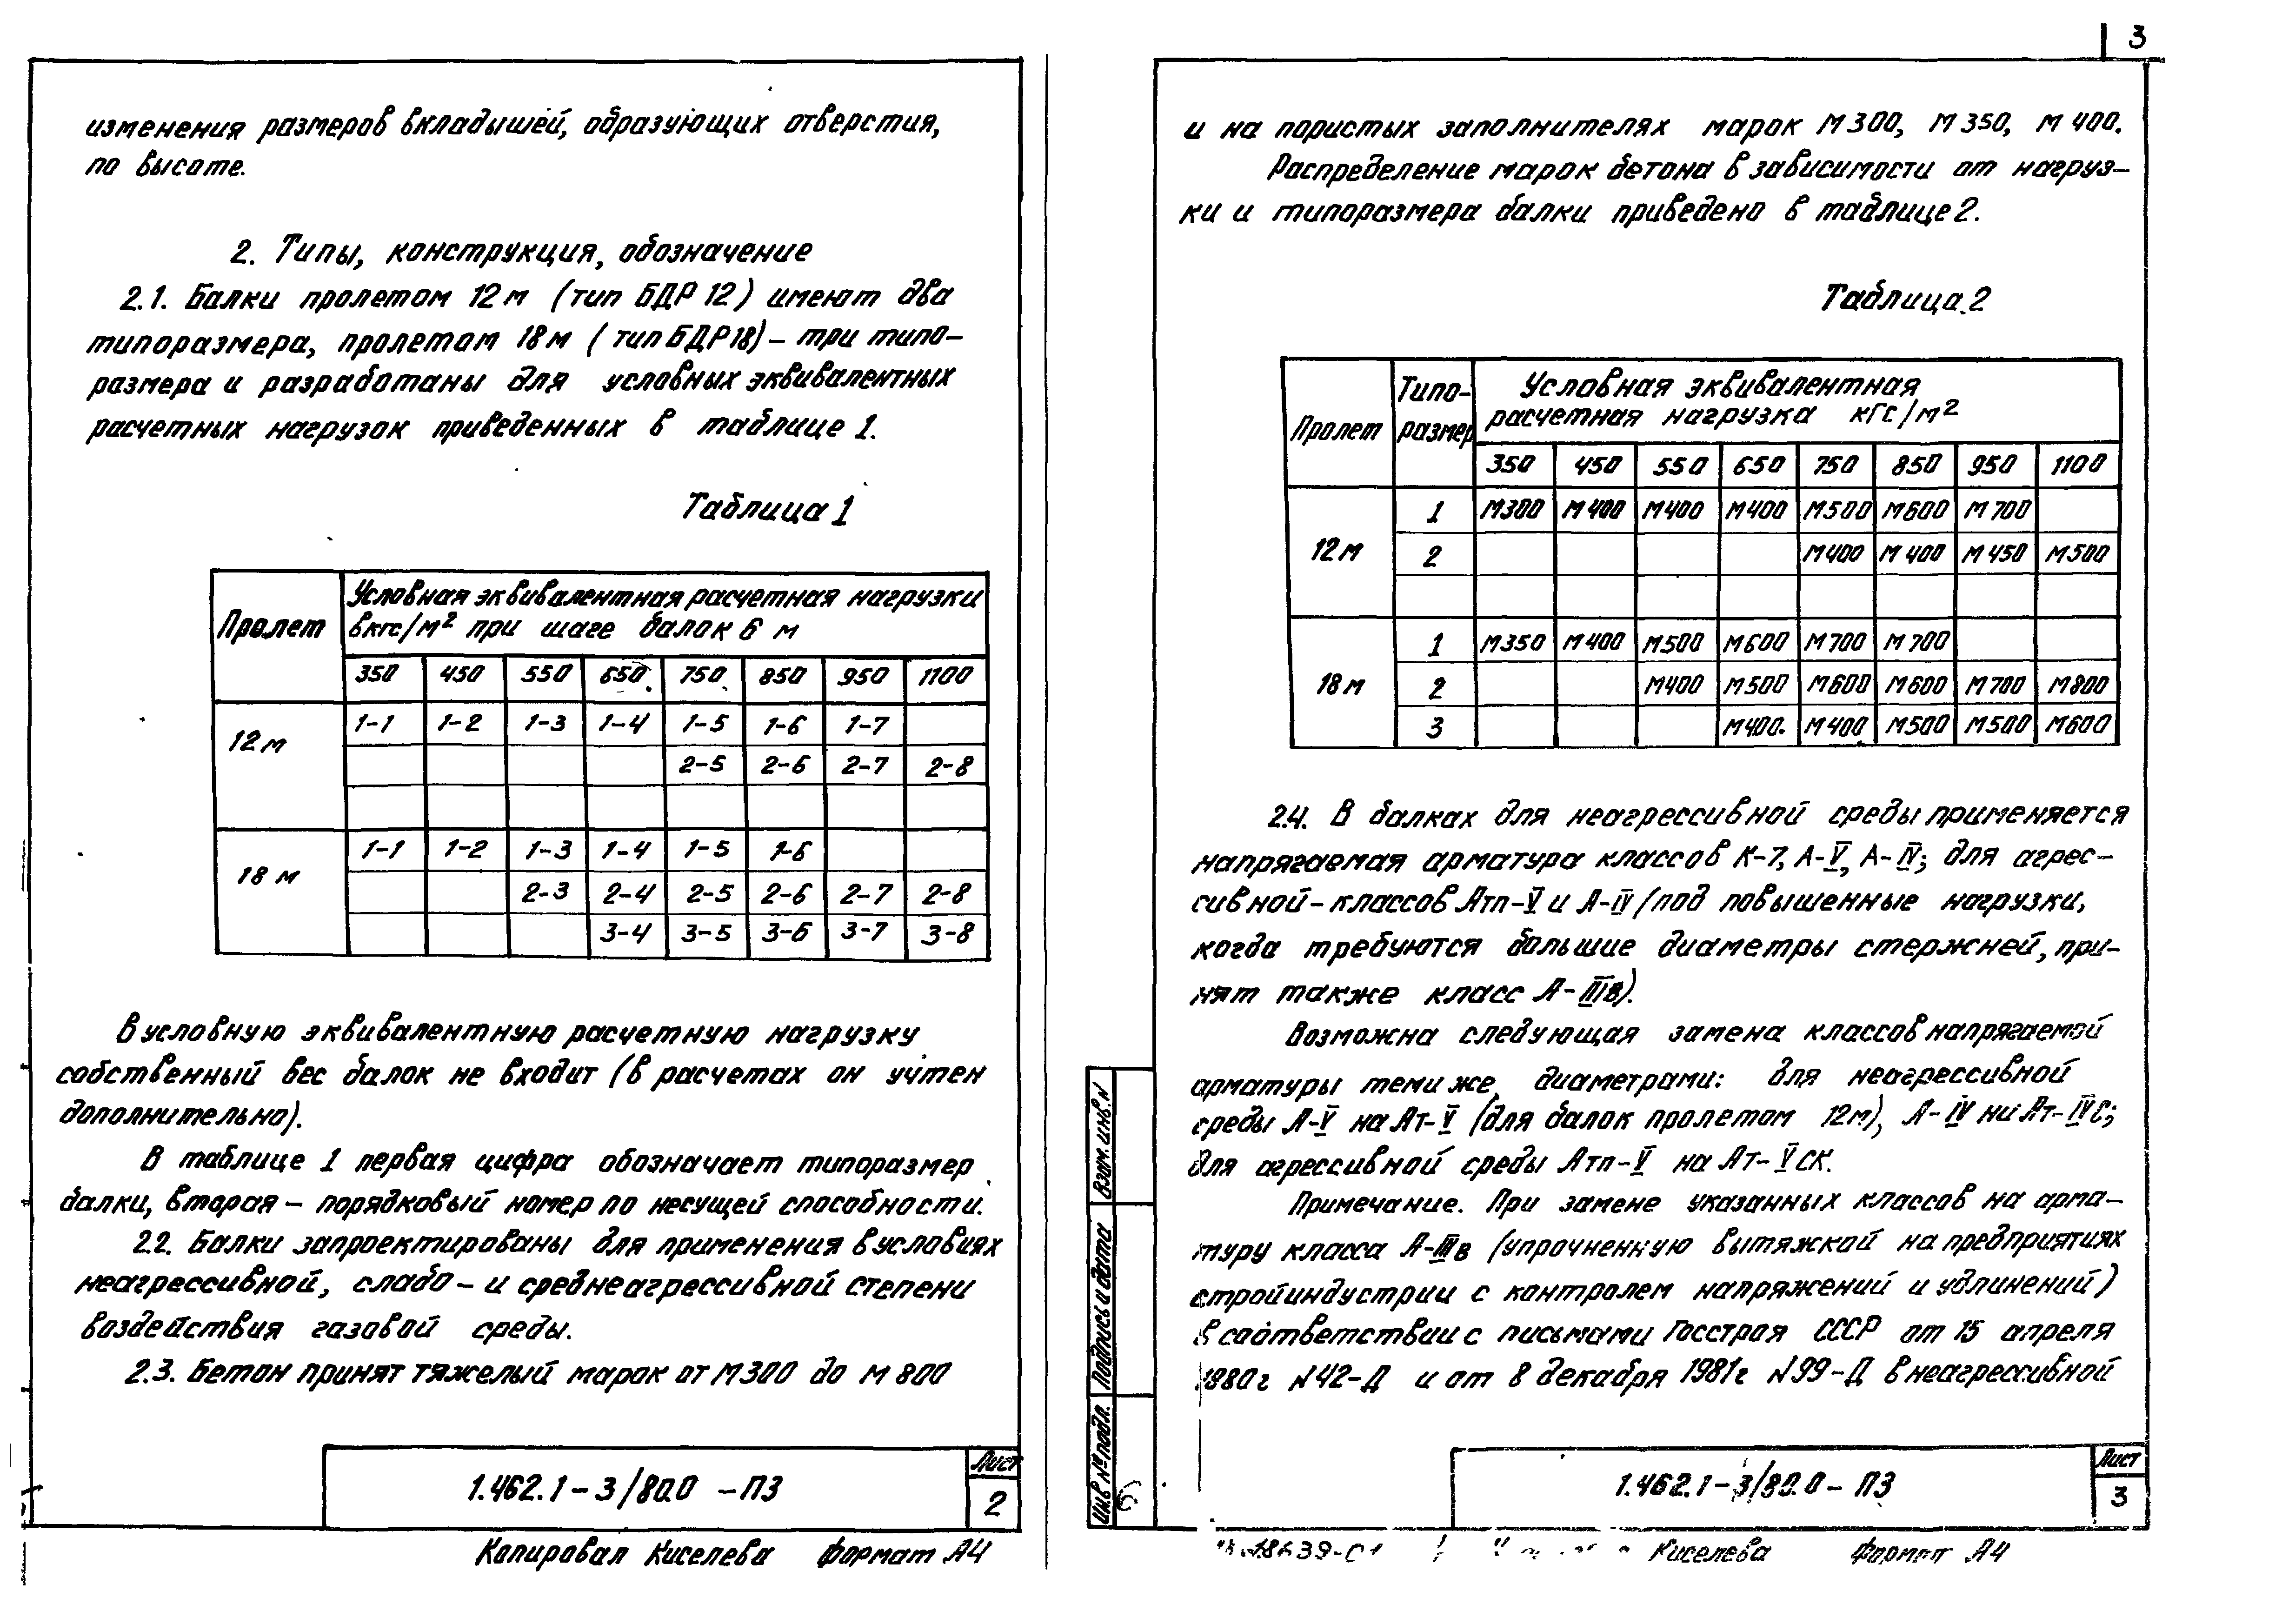 изменения размеров вкладышей, образующих отверстия,
по высоте.
2. Типы, конструкция, обозначение
2.1. Балки пролетом 12 м (тип БДР 12) имеют два
типоразмера, пролетом 18 м (тип БДР18) – три типо-
размера и разработаны для условных эквивалентных
расчетных нагрузок приведенных в таблице 1.
Таблица 1
Пролет
Условная эквивалентная расчетная нагрузки
в кгс/м² при шаге балок 6 м
350 450 550 650 750 850 950 1100
12 м
1-1 1-2 1-3 1-4 1-5 1-6 1-7
2-5 2-6 2-7 2-8
18 м
1-1 1-2 1-3 1-4 1-5 1-6
2-3 2-4 2-5 2-6 2-7 2-8
3-4 3-5 3-6 3-7 3-8
В условную эквивалентную расчетную нагрузку
собственный вес балок не входит (в расчетах он учтен
дополнительно).
В таблице 1 первая цифра обозначает типоразмер
балки, вторая – порядковый номер по несущей способности.
2.2. Балки запроектированы для применения в условиях
неагрессивной, слабо – и среднеагрессивной степени
воздействия газовой среды.
2.3. Бетон принят тяжелый марок от М300 до М 800
1.462.1-3/80.0 -ПЗ
Лист
2
Копировал Киселева Формат А4
3
и на пористых заполнителях марок М300, М350, М400.
Распределение марок бетона в зависимости от нагруз-
ки и типоразмера балки приведено в таблице 2.
Таблица 2
Пролет
Типо-
размер
Условная эквивалентная
расчетная нагрузка кгс/м²
350 450 550 650 750 850 950 1100
12 м
1 М300 М400 М400 М400 М500 М600 М700
2 М400 М400 М450 М500
18 м
1 М350 М400 М500 М600 М700 М700
2 М400 М500 М600 М600 М700 М800
3 М400. М400 М500 М500 М600
2.4. В балках для неагрессивной среды применяется
напрягаемая арматура классов К-7, А-V, А-IV; для агрес-
сивной – классов Атп-V и А-IV (под повышенные нагрузки,
когда требуются большие диаметры стержней, при-
нят также класс А-IIIв).
Возможна следующая замена классов напрягаемой
арматуры теми же диаметрами: для неагрессивной
среды А-V на Ат-V (для балок пролетом 12м), А-IV на Ат-IVС;
для агрессивной среды Атп-V на Ат-VСК.
Примечание. При замене указанных классов на арма-
туру класса А-IIIв (упрочненную вытяжкой на предприятиях
стройиндустрии с контролем напряжений и удлинений)
в соответствии с письмами Госстроя СССР от 15 апреля
1980г №42-Д и от 8 декабря 1981г №99-Д в неагрессивной
Взам. инв. N
Подпись и дата
Инв № подл.
1.462.1-3/80.0-ПЗ
Лист
3
18639-01 Киселева Формат А4